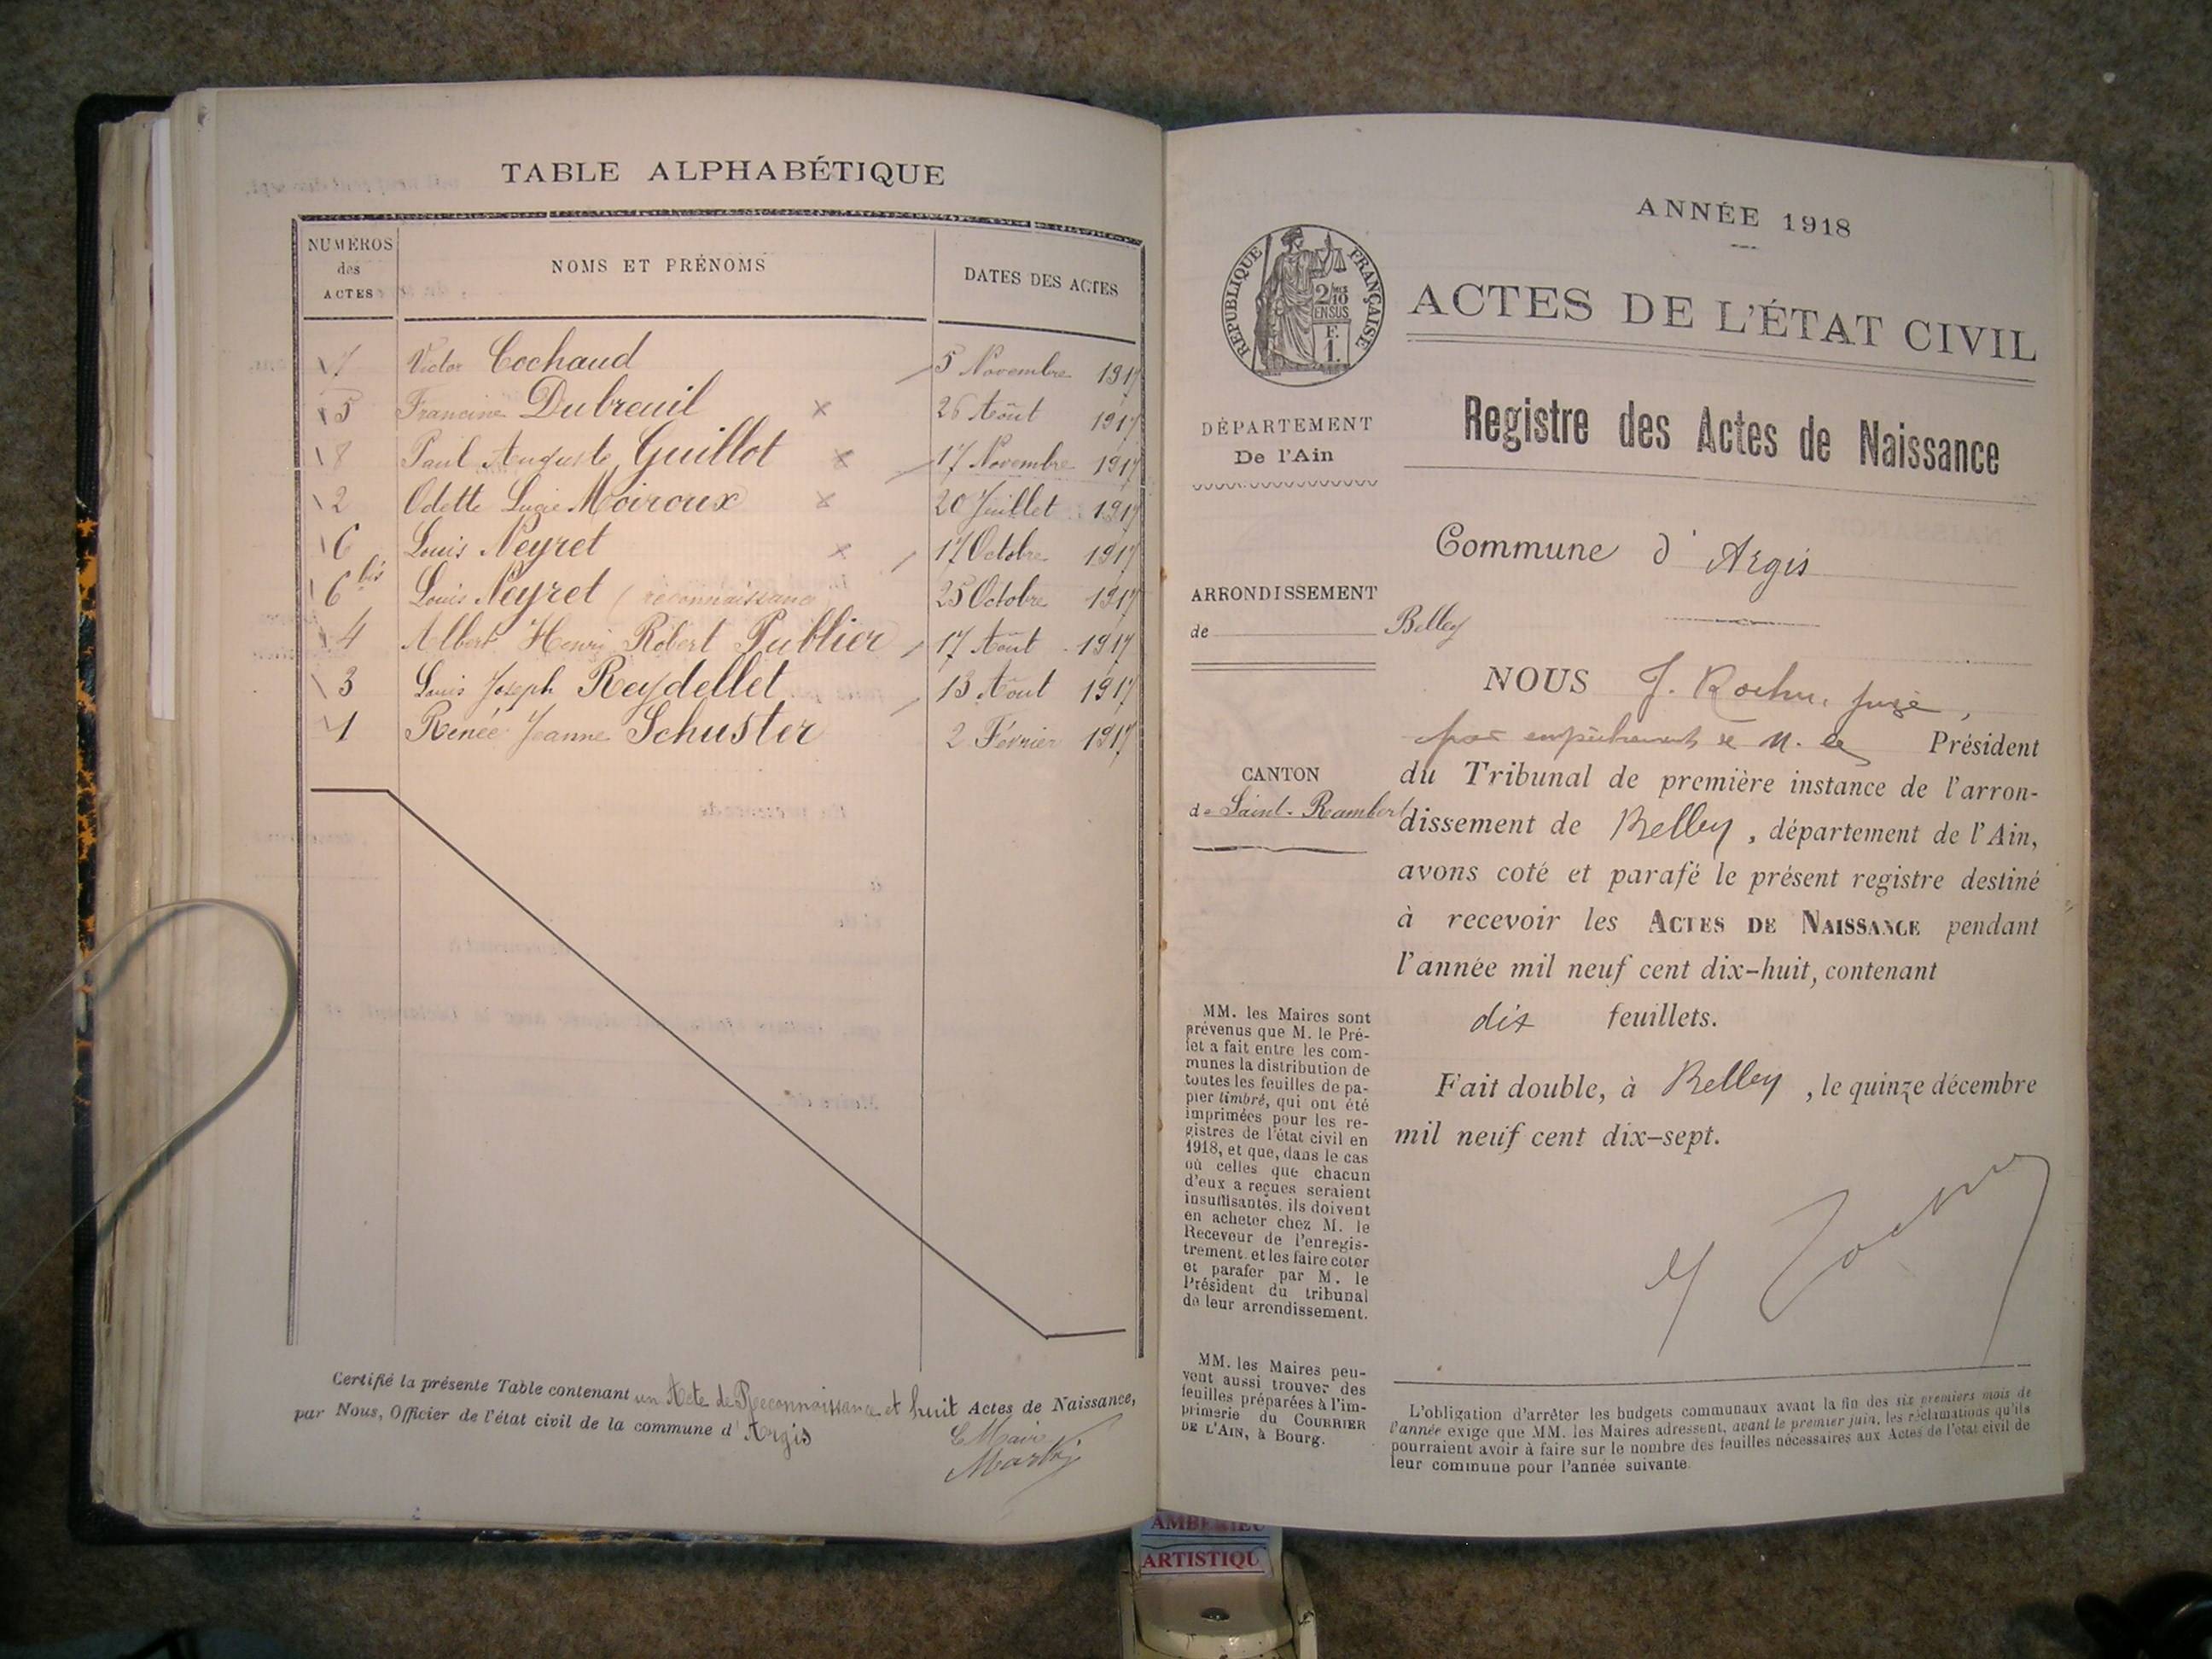 TABLE ALPHABÉTIQUE
NUMÉROS des ACTES NOMS ET PRÉNOMS DATES DES ACTES
7 Victor Cochaud 5 Novembre 1917
5 Francine Dubreuil 26 Août 1917
8 Paul Auguste Guillot 17 Novembre 1917
2 Odette Lucie Moiroux 20 Juillet 1917
6 Louis Neyret 17 Octobre 1917
6 bis Louis Neyret (reconnaissance 25 Octobre 1917
4 Albert Henri Robert Publier 17 Août 1917
3 Louis Joseph Reydellet 13 Août 1917
1 Renée Jeanne Schuster 2 Février 1917
Certifié la présente Table contenant un Acte de Reconnaissance et huit Actes de Naissance,
par Nous, Officier de l'état civil de la commune d' Argis
Le Maire
ANNÉE 1918
RÉPUBLIQUE FRANÇAISE
2/10
EN SUS
F.
1.
ACTES DE L'ÉTAT CIVIL
Registre des Actes de Naissance
DÉPARTEMENT
De l'Ain
Commune d' Argis
ARRONDISSEMENT
de Belley
CANTON
de Saint-Rambert
NOUS J. Rochu, juge,
par empêchement de M. le Président
du Tribunal de première instance de l'arron-
dissement de Belley, département de l'Ain,
avons coté et parafé le présent registre destiné
à recevoir les ACTES DE NAISSANCE pendant
l'année mil neuf cent dix-huit, contenant
dix feuillets.
Fait double, à Belley, le quinze décembre
mil neuf cent dix-sept.
MM. les Maires sont
prévenus que M. le Pré-
fet a fait entre les com-
munes la distribution de
toutes les feuilles de pa-
pier timbré, qui ont été
imprimées pour les re-
gistres de l'état civil en
1918, et que, dans le cas
où celles que chacun
d'eux a reçues seraient
insuffisantes, ils doivent
en acheter chez M. le
Receveur de l'enregis-
trement, et les faire coter
et parafer par M. le
Président du tribunal
de leur arrondissement.
MM. les Maires peu-
vent aussi trouver des
feuilles préparées à l'im-
primerie du COURRIER
DE L'AIN, à Bourg.
L'obligation d'arrêter les budgets communaux avant la fin des six premiers mois de
l'année exige que MM. les Maires adressent, avant le premier juin, les réclamations qu'ils
pourraient avoir à faire sur le nombre des feuilles nécessaires aux Actes de l'état civil de
leur commune pour l'année suivante.
AMBERIEU
ARTISTIQU